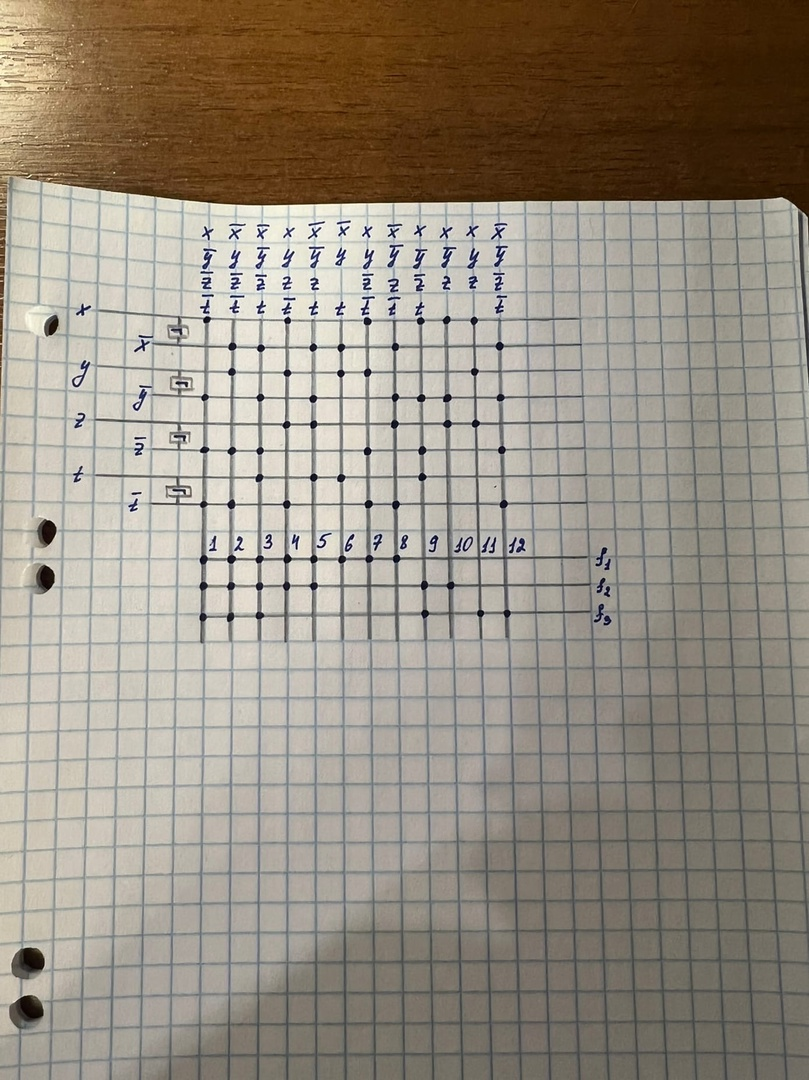 x x̄ x̄ x x̄ x̄ x x̄ x x x x̄
ȳ y ȳ y ȳ y y ȳ ȳ ȳ y ȳ
z̄ z̄ z̄ z z z̄ z z̄ z z z̄
t̄ t̄ t t̄ t t t̄ t̄ t t̄
x
x̄
y
ȳ
z
z̄
t
t̄
1 2 3 4 5 6 7 8 9 10 11 12
f₁
f₂
f₃